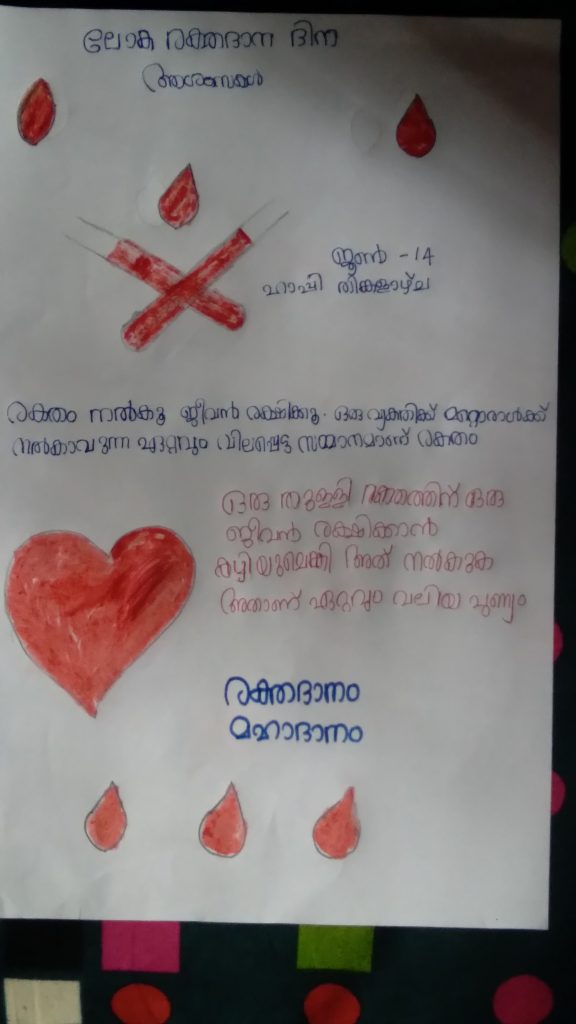 ലോക രക്തദാന ദിന
ആശംസകൾ
ജൂൺ - 14
ഹാപ്പി തിങ്കളാഴ്ച
രക്തം നൽകൂ ജീവൻ രക്ഷിക്കൂ. ഒരു വ്യക്തിക്ക് മറ്റൊരാൾക്ക്
നൽകാവുന്ന ഏറ്റവും വിലപ്പെട്ട സമ്മാനമാണ് രക്തം
ഒരു തുള്ളി രക്തത്തിന് ഒരു
ജീവൻ രക്ഷിക്കാൻ
കഴിയുമെങ്കി അത് നൽകുക
അതാണ് ഏറ്റവും വലിയ പുണ്യം
രക്തദാനം
മഹാദാനം